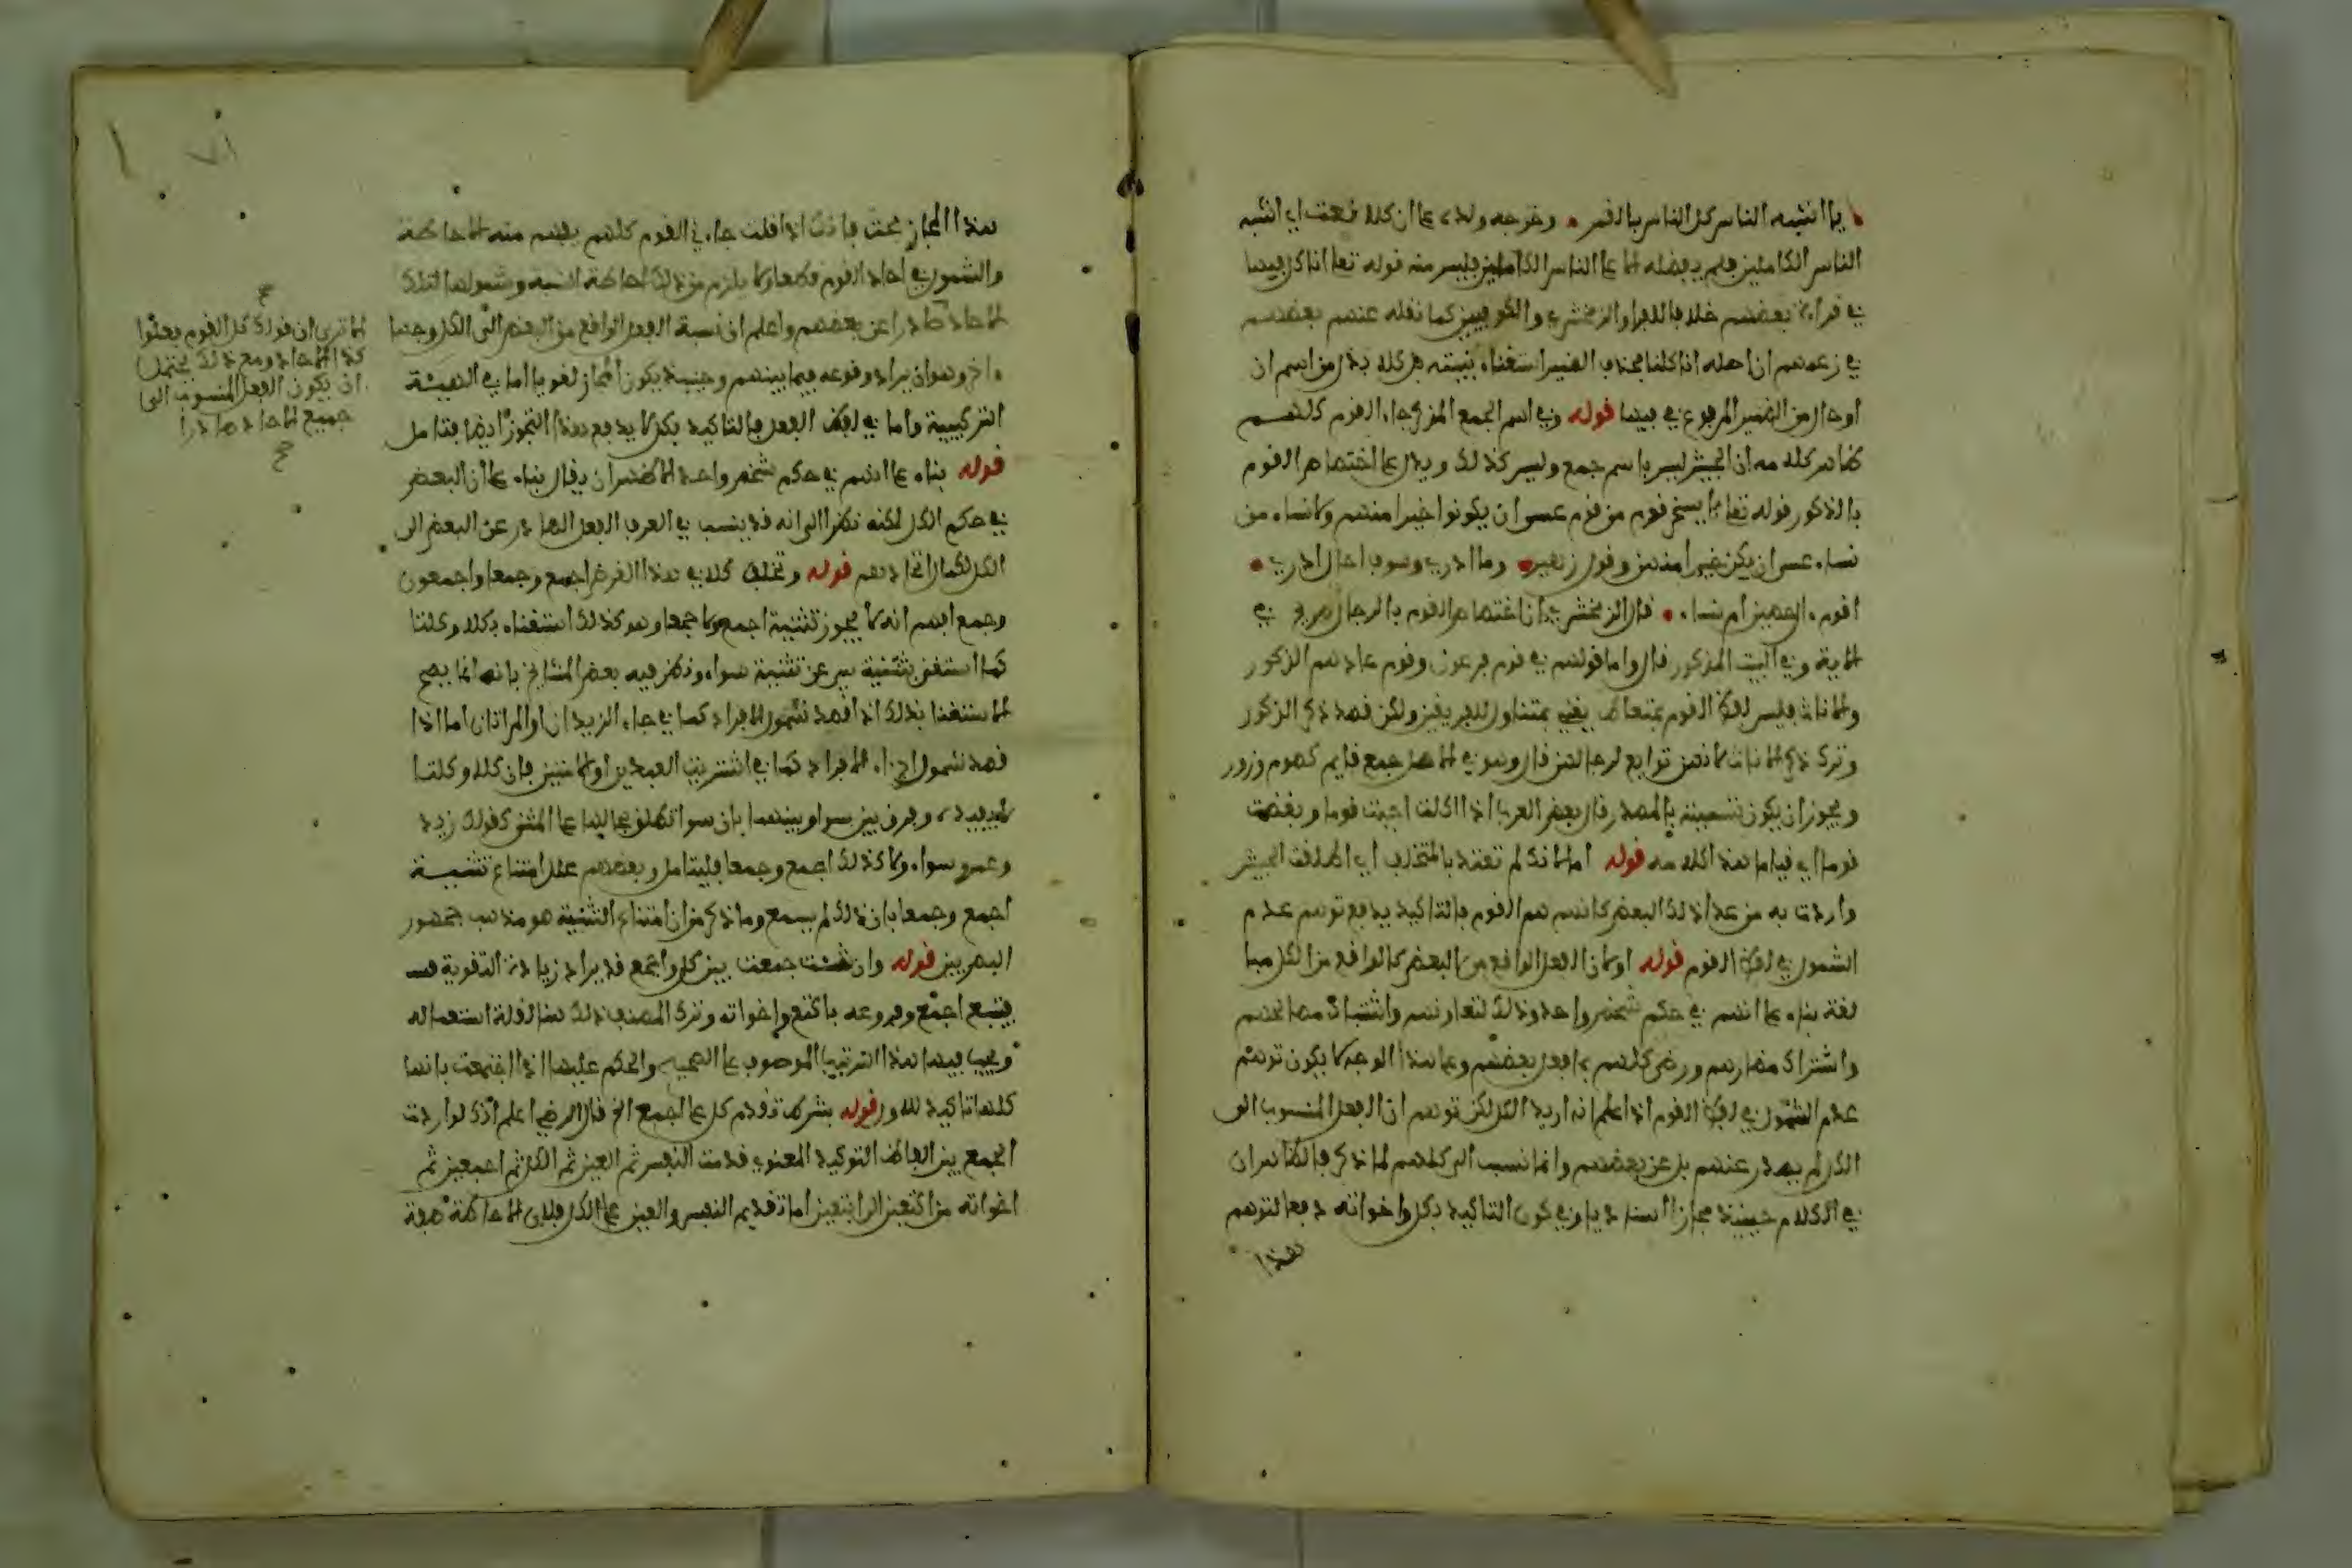 يا اشبه الناس كل الناس بالقمر • وخرجه ولده على ان كله نعت اي اشبه
الناس الكاملين فلم يفضله الا على الناس الكاملين فليس منه قوله تعا انا كل فيها
في قراءة بعضهم خلافا للفرا والزمخشري والكوفيين كما نقله عنهم بعضهم
في زعمهم ان اصله انا كلنا فحذف الضمير استغناء بنيته بل كله بدل من اسم ان
او حال من الضمير المرفوع في فيها قوله وفي اسم الجمع المذكر جاء القوم كلهم
ظاهر كلامه ان الجيش ليس باسم جمع وليس كذلك ويدل على اختصاص القوم
بالذكور قوله تعا لا يسخر قوم من قوم عسى ان يكونوا خيرا منهم ولا نساء من
نساء عسى ان يكن خيرا منهن وقول زهير • وما ادري وسوف اخال ادري •
اقوم ءال حصن ام نساء • قال الزمخشري ان اختصاص القوم بالرجال صريح في
الاية وفي البيت المذكور قال واما قولهم في قوم فرعون وقوم عاد هم الذكور
والاناث فليس لفظ القوم بمتعاط يعني بمتناول للفريقين ولكن قصد ذكر الذكور
وترك ذكر الاناث لانهن توابع لرجالهن قال وهو في الاصل جمع قايم كصوم وزور
ويجوز ان يكون تسمية بالمصدر قال بعض العرب اذا اكلت احببت قوما وبغضت
قوما اي قياما هذا كلامه قوله اما لانك لم تعتد بالمتخلف اي اطلقت الجيش
واردت به من عدا ذلك البعض كانهم هم القوم فالتاكيد يدفع توهم عدم
الشمول في لفظ القوم قوله او لان الفعل الواقع من البعض كالواقع من الكل مبا
لغة بناء على انهم في حكم شخص واحد وذلك لتعاونهم واشتباك مصالحهم
واشتراك مضارهم ورضى كلهم بما فعل بعضهم وعلى هذا الوجه لا يكون توهم
عدم الشمول في لفظ القوم اذا علم انه اريد الكل لكن توهم ان الفعل المنسوب الى
الكل لم يصدر عنهم بل عن بعضهم وانما نسب الى كلهم لما ذكر فالظاهر ان
في الكلام حينئذ مجازا اسناديا وفي كون التاكيد بكل واخواته دفعا لتوهم
هذا
هذا المجاز بحث فانك اذا قلت جاءني القوم كلهم يفهم منه الاحاطة
والشمول في احاد القوم قطعا ولا يلزم من ذلك احاطة النسبة وشمولها لتلك
الاحاد صادرا عن بعضهم واعلم ان نسبة الفعل الواقع من البعض الى الكل وجها
ءاخر وهو ان يراد وقوعه فيما بينهم وحينئذ يكون المجاز لغويا اما في الهيئة
التركيبية واما في لفظ الفعل فالتاكيد بكل لا يدفع هذا التجوز ايضا فتامل
قوله بناء على انهم في حكم شخص واحد الاظهر ان يقال بناء على ان البعض
في حكم الكل لكنه نظر الى انه قد ينسب في العرف الفعل الصادر عن البعض الى
الكل لكمال اتحادهم قوله وتخلف كلا في هذا الغرض اجمع وجمعا واجمعون
وجمع افهم انه لا يجوز تثنية اجمع ولا جمعا وهو كذلك استغناء بكلا وكلتا
كما استغني بتثنية سي عن تثنية سواء ونظر فيه بعض المشايخ بانه انما يصح
الاستغنا بذلك اذا قصد شمول الافراد كما في جاء الزيدان او المراتان اما اذا
قصد شمول اجزاء الافراد كما في اشتريت العبدين او الامتين فان كلا وكلتا
لا يفيده وفرق بين سوا وبينهما بان سوا تطلق بحالها على المثنى كقولك زيد
وعمرو سواء ولا كذلك اجمع وجمعا فليتامل وبعضهم علل امتناع تثنية
اجمع وجمعا بان ذلك لم يسمع وما ذكر من ان امتناع التثنية هو مذهب جمهور
البصريين قوله وان شئت جمعت بين كل واجمع قد يراد زيادة التقوية
فيتبع اجمع وفروعه باكتع واخواته وترك المصنف ذلك هنا لقلة استعماله
ويجب فيها هذا الترتيب الموصوف على الصحيح والحكم عليها اذا اجتمعت بانها
كلها تاكيد للاول قوله بشرط تقدم كل على اجمع الخ قال الرضي اعلم انك لو اردت
الجمع بين الفاظ التوكيد المعنوي قدمت النفس ثم العين ثم الكل ثم اجمعين ثم
اخواته من اكتعين الى ابتعين اما تقديم النفس والعين على الكل فلان الاحاطة صفة
الا ترى ان قولك كل القوم فعلوا
كذا الاحاد ومع ذلك يحتمل
ان يكون الفعل المنسوب الى
جميع الاحاد صادرا
صح